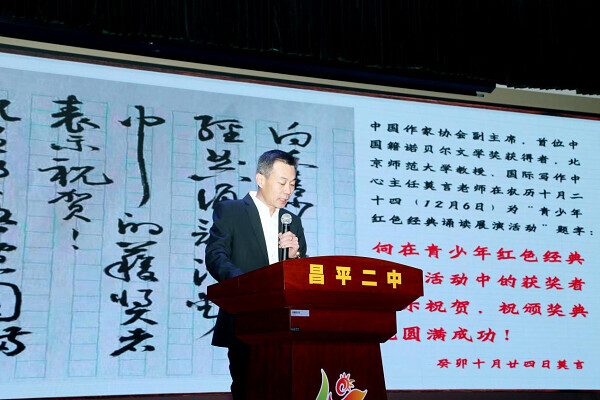 中的獲奖者
表示祝贺！
中国作家协会副主席，首位中
国籍诺贝尔文学奖获得者，北
京师范大学教授、国际写作中
心主任莫言老师在农历十月二
十四（12月6日）"青少年
红色经典诵读展演活动"题字：
何在青少年红色经典
活动中的获奖者
示祝贺，祝颁奖典
圆满成功！
癸卯十月廿四日莫言
昌平二中